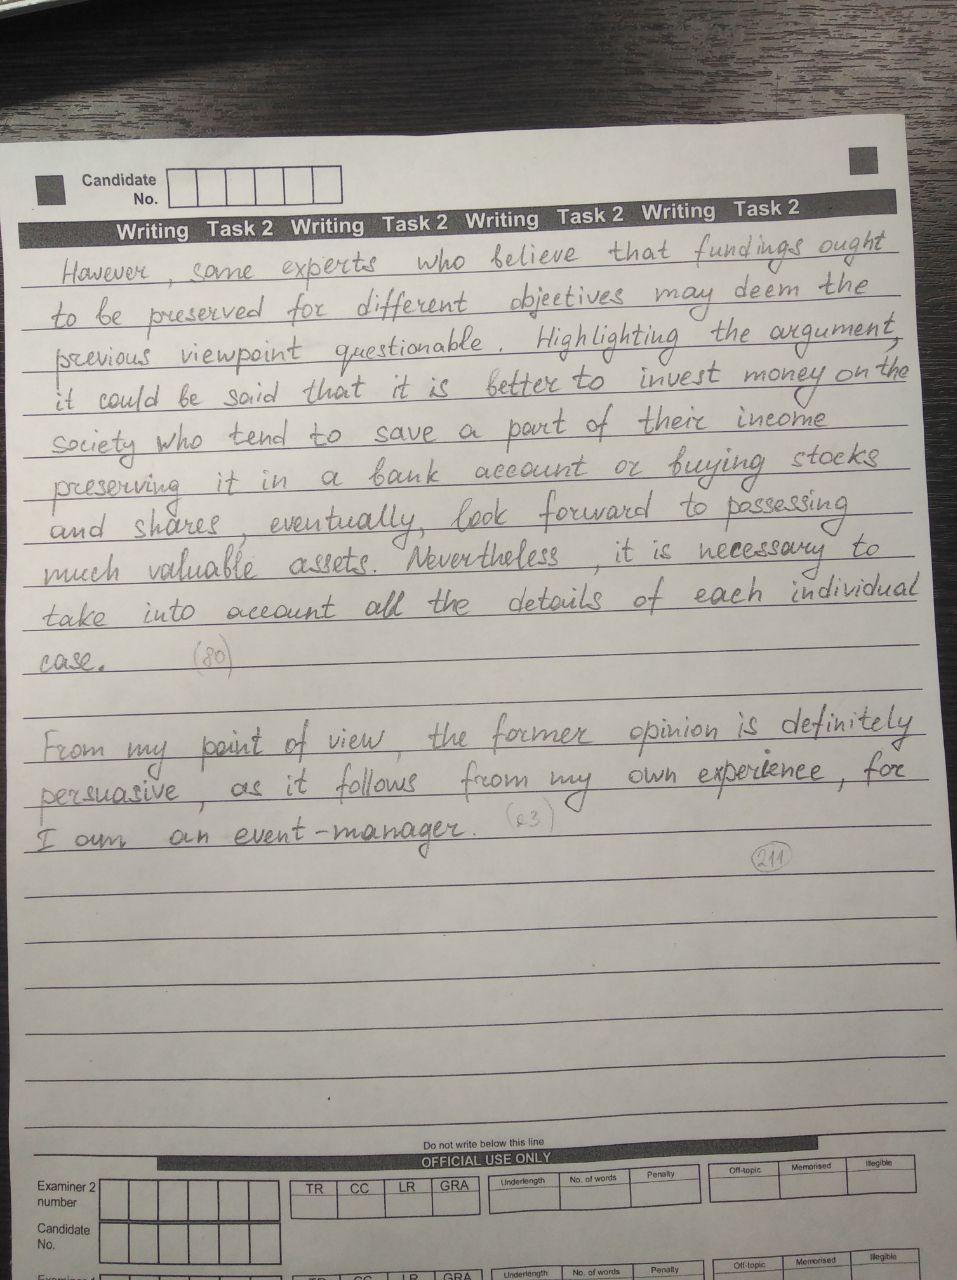 Candidate
No.
Writing Task 2 Writing Task 2 Writing Task 2 Writing Task 2
However, some experts who believe that fundings ought
to be preserved for different objectives may deem the
previous viewpoint questionable. Highlighting the argument,
it could be said that it is better to invest money on the
society who tend to save a part of their income
preserving it in a bank account or buying stocks
and shares, eventually, look forward to possessing
much valuable assets. Nevertheless, it is necessary to
take into account all the details of each individual
case. (80)
From my point of view, the former opinion is definitely
persuasive, as it follows from my own experience, for
I am an event-manager. (23)
211
Do not write below this line
OFFICIAL USE ONLY
Examiner 2
number
TR CC LR GRA
Underlength No. of words Penalty
Off-topic Memorised Illegible
Candidate
No.
Examiner 1
TR CC LR GRA
Underlength No. of words Penalty
Off-topic Memorised Illegible